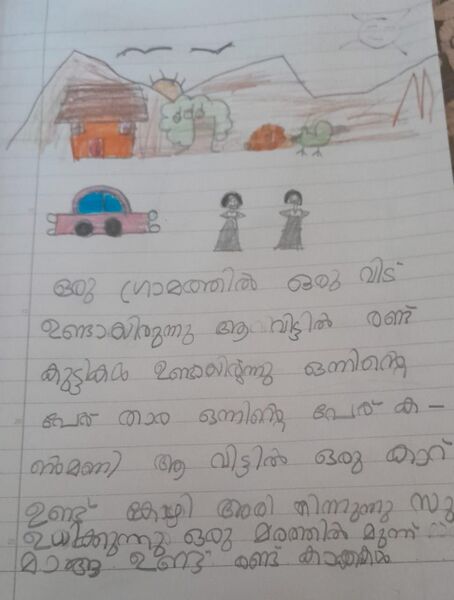 ഒരു ഗ്രാമത്തിൽ ഒരു വിട്
ഉണ്ടായിരുന്നു ആ വിട്ടിൽ രണ്ട്
കുട്ടികൾ ഉണ്ടായിരുന്നു ഒന്നിന്റെ
പേര് താര ഒന്നിന്റെ പേര് ക -
ൺമണി ആ വിട്ടിൽ ഒരു കാറ്
ഉണ്ട് കോഴി അരി തിന്നുന്നു സൂ
ഉദിക്കുന്നു ഒരു മരത്തിൽ മുന്ന്
മാങ്ങ ഉണ്ട് രണ്ട് കാക്കകൾ